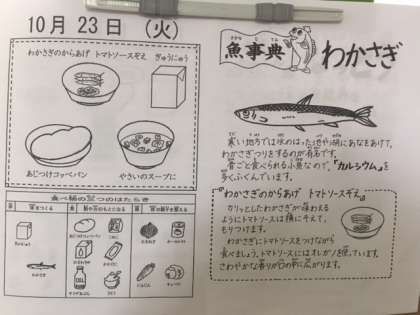 10月 23日 (火)
わかさぎのからあげ トマトソースぞえ
ぎゅうにゅう
あじつけコッペパン
やさいのスープに
食べ物の三つのはたらき
ぎゅうにゅう
わかさぎ
あじつけコッペパン
にんじん
魚事典
さかなじてん
わかさぎ
寒い地方では氷のはった池や湖にあなをあけて、
わかさぎつりをするのが有名です。
骨ごと食べられる小魚なので、「カルシウム」を
多くふくんでいます。
『わかさぎのからあげ トマトソースぞえ』
カリッとしたわかさぎが味わえる
ようにトマトソースは横にそえて、
もりつけます。
わかさぎにトマトソースをつけながら
食べましょう。トマトソースにはオレガノを使っています。
さわやかな香りが口の中に広がります。